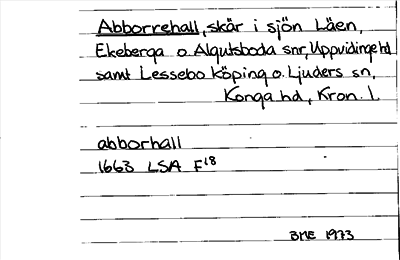 Abborrehall, skär i sjön Läen,
Ekeberga o. Algutsboda snr, Uppvidinge hd
samt Lessebo köping o. Ljuders sn,
Konga hd, Kron. l.
abborhall
1663 LSA F18
BME 1973